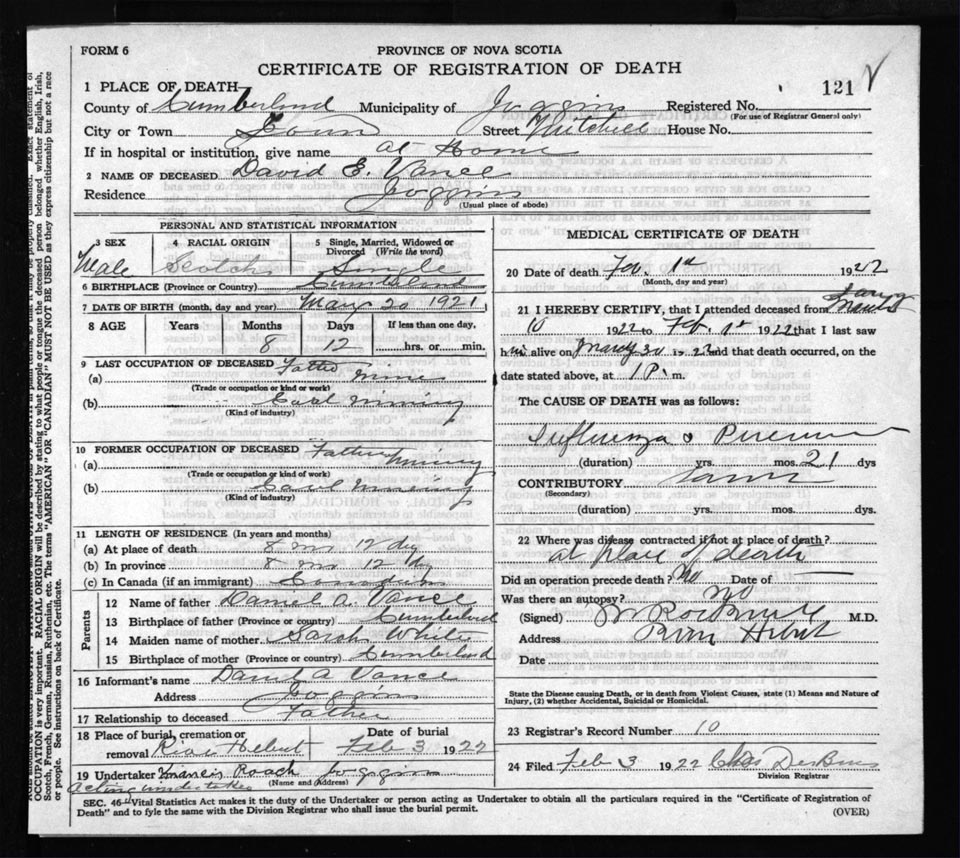 FORM 6
PROVINCE OF NOVA SCOTIA
CERTIFICATE OF REGISTRATION OF DEATH
121
1 PLACE OF DEATH
County of Cumberland Municipality of Joggins Registered No.
(For use of Registrar General only)
City or Town Town Street Mitchell House No.
If in hospital or institution, give name at Home
2 NAME OF DECEASED David E. Vance
Residence Joggins
(Usual place of abode)
PERSONAL AND STATISTICAL INFORMATION
3 SEX 4 RACIAL ORIGIN 5 Single, Married, Widowed or Divorced (Write the word)
Male Scotch Single
6 BIRTHPLACE (Province or Country) Cumberland
7 DATE OF BIRTH (month, day and year) May 20 1921
8 AGE Years Months Days If less than one day,
8 12 hrs. or min.
9 LAST OCCUPATION OF DECEASED Father
(a) Mine
(Trade or occupation or kind or work)
(b) Coal Mining
(Kind of industry)
10 FORMER OCCUPATION OF DECEASED Father
(a) Mining
(Trade or occupation or kind of work)
(b) Coal Mining
(Kind of industry)
11 LENGTH OF RESIDENCE (In years and months)
(a) At place of death 8 mo 12 dy
(b) In province 8 mo 12 dy
(c) In Canada (if an immigrant) Canadian
Parents
12 Name of father Daniel A. Vance
13 Birthplace of father (Province or country) Cumberland
14 Maiden name of mother Sarah White
15 Birthplace of mother (Province or country) Cumberland
16 Informant's name Daniel A Vance
Address Joggins
17 Relationship to deceased Father
18 Place of burial, cremation or removal River Hebert Date of burial Feb 3 1922
19 Undertaker Francis Roach Joggins
(Name and Address)
acting undertaker
MEDICAL CERTIFICATE OF DEATH
20 Date of death Feb. 1st 1922
(Month, day and year)
21 I HEREBY CERTIFY, that I attended deceased from
10 1922 to Feb. 1st 1922 that I last saw
him alive on 30 1922 and that death occurred, on the
date stated above, at 1 P. m.
The CAUSE OF DEATH was as follows:
Influenza &
(duration) yrs. mos. 21 dys
CONTRIBUTORY same
(Secondary)
(duration) yrs. mos. dys.
22 Where was disease contracted if not at place of death?
at place of death
Did an operation precede death? No Date of
Was there an autopsy? no
(Signed) M.D.
Address River Hebert
Date
State the Disease causing Death, or in death from Violent Causes, state (1) Means and Nature of
Injury, (2) whether Accidental, Suicidal or Homicidal.
23 Registrar's Record Number 10
24 Filed Feb 3 1922 Chas
Division Registrar
SEC. 46—Vital Statistics Act makes it the duty of the Undertaker or person acting as Undertaker to obtain all the particulars required in the "Certificate of Registration of
Death" and to fyle the same with the Division Registrar who shall issue the burial permit.
(OVER)
OCCUPATION is very important. RACIAL ORIGIN will be described by stating to what people or tongue the deceased person belonged whether English, Irish,
Scotch, French, German, Russian, Ruthenian, etc. The terms "AMERICAN" OR "CANADIAN" MUST NOT BE USED as they express citizenship but not a race
or people. See instructions on back of Certificate.